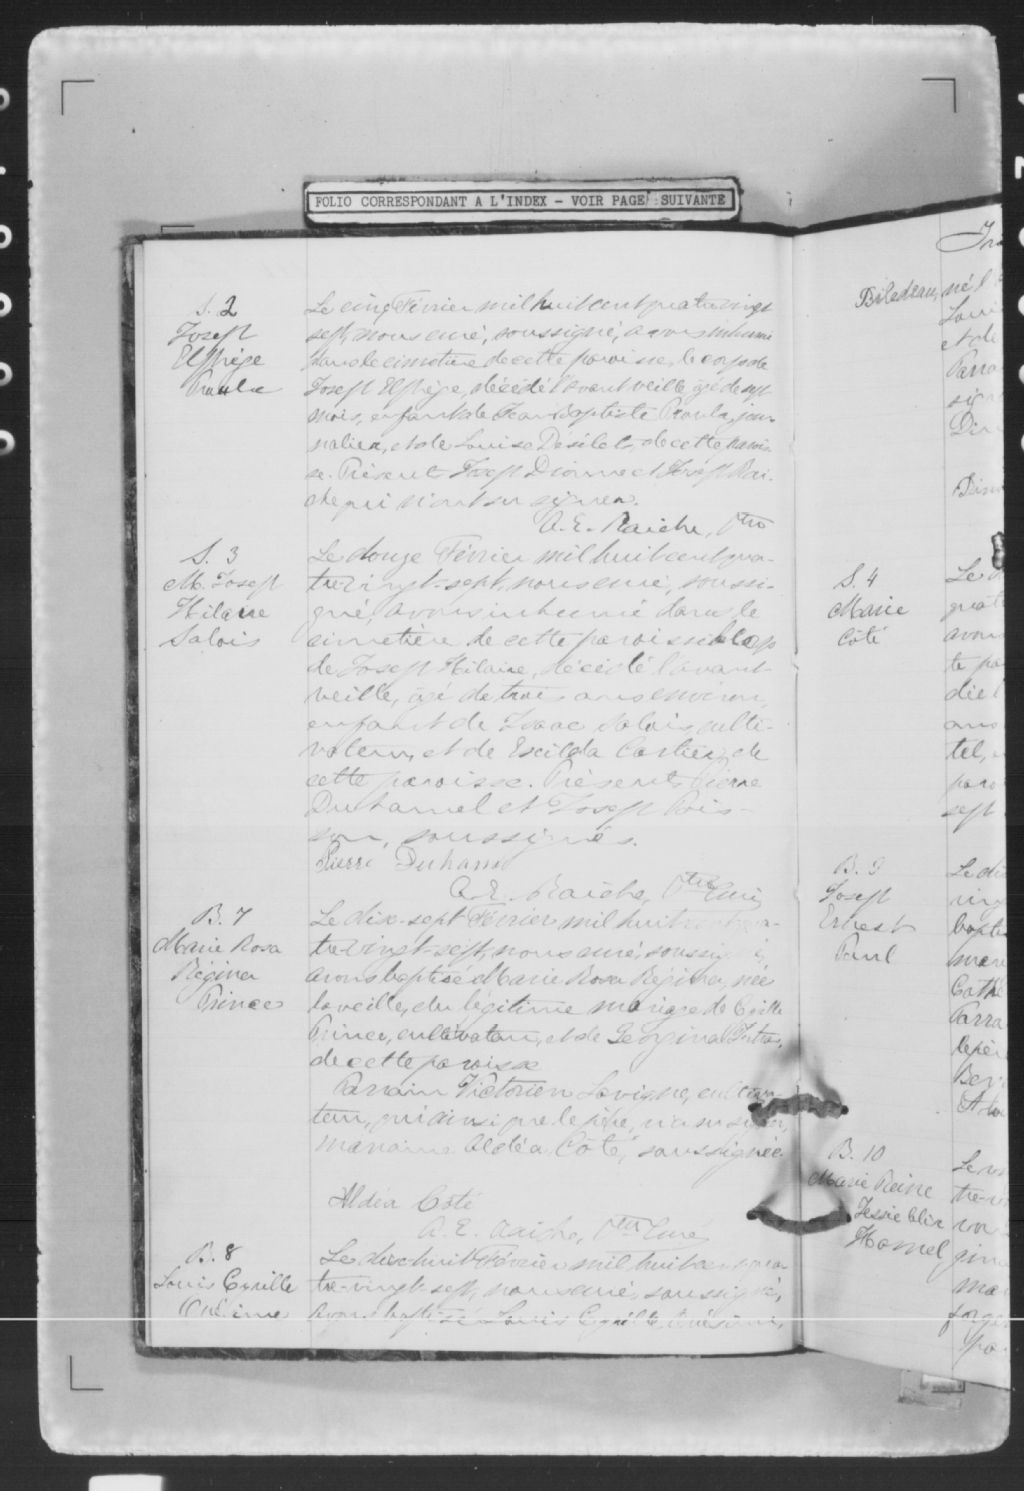 FOLIO CORRESPONDANT A L'INDEX - VOIR PAGE SUIVANTE
S. 2
Joseph
Elphège
Proulx
Le cinq Février mil huit cent quatre vingt
sept, nous curé, soussigné, avons inhumé
dans le cimetière de cette paroisse, le corps de
Joseph Elphège, décédé l'avant veille âgé de sept
mois, enfant de Jean Baptiste Proulx, jour-
nalier, et de Louise Désilets, de cette parois-
se. Présents Joseph Dionne et Joseph Rai-
che qui n'ont su signer.
A. E. Raiche, Ptre
S. 3
M. Joseph
Hilaire
Salois
Le douze Février mil huit cent qua-
tre-vingt-sept, nous curé, soussi-
gné, avons inhumé dans le
cimetière de cette paroisse le corps
de Joseph Hilaire, décédé l'avant
veille, âgé de trois ans environ,
enfant de Isaac Salois, culti-
vateur, et de Exilda Cartier, de
cette paroisse. Présents Pierre
Duhamel et Joseph Pois-
son, soussignés.
Pierre Duhamel
A. E. Raiche, Ptre Curé
B. 7
Marie Rosa
Régina
Prince
Le dix-sept Février mil huit cent qua-
tre-vingt-sept, nous curé, soussigné,
avons baptisé Marie Rosa Régina, née
la veille, du légitime mariage de
Prince, cultivateur, et de Georgina
de cette paroisse
Parrain Victorien Lavigne, cultiva-
teur, qui ainsi que le père, n'a su signer,
marraine Aldéa Côté, soussignée.
Aldéa Coté
A. E. Raiche, Ptre Curé
B. 8
Louis Cyrille
Le dix-huit Février mil huit cent qua-
tre-vingt-sept, nous curé, soussigné,
avons baptisé Louis Cyrille
Bilodeau,
S. 4
Marie
Coté
B. 9
Joseph
Ernest
Paul
B. 10
Marie Reine
Hamel
né l'
et de
Parra
sign
Le d
quatr
avons
te pa
die l
ans
tel,
paro
sept
Le di
ving
bapti
mari
Cathé
Parra
le pèr
Le
tre-v